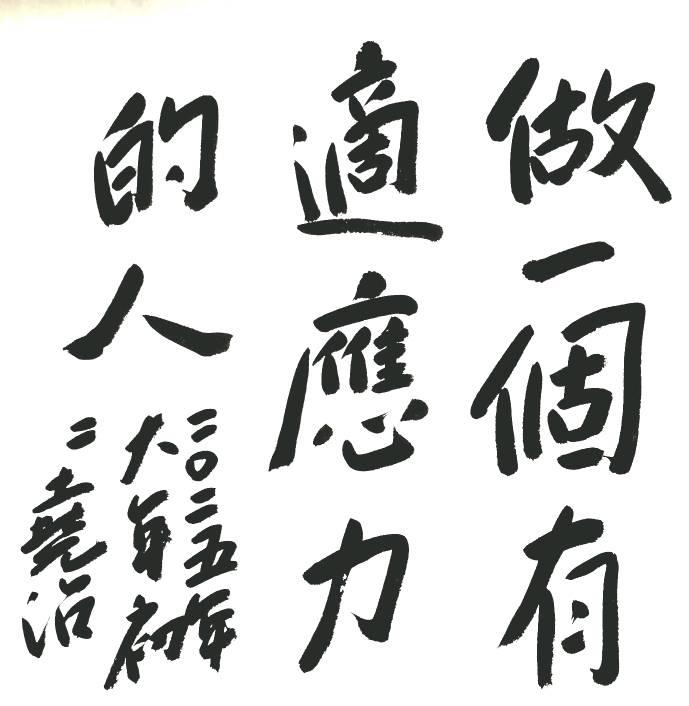 做一個有
適應力
的人
二〇二五年
大年初
二堯治